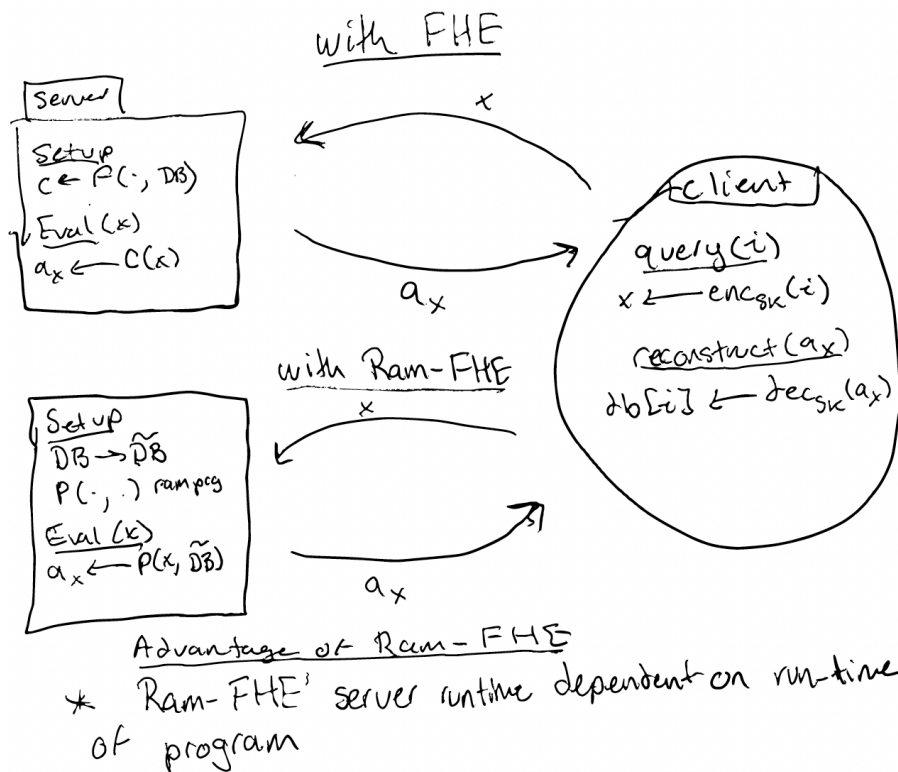 with FHE
Server
Setup
C ← P(·, DB)
Eval(x)
a_x ← C(x)
x
a_x
client
query(i)
x ← enc_sk(i)
reconstruct(a_x)
db[i] ← dec_sk(a_x)
with Ram-FHE
x
Setup
DB → D̃B̃
P(·, ·) ram prg
Eval(x)
a_x ← P(x, D̃B̃)
a_x
Advantage of Ram-FHE
* Ram-FHE' server runtime dependent on run-time
of program